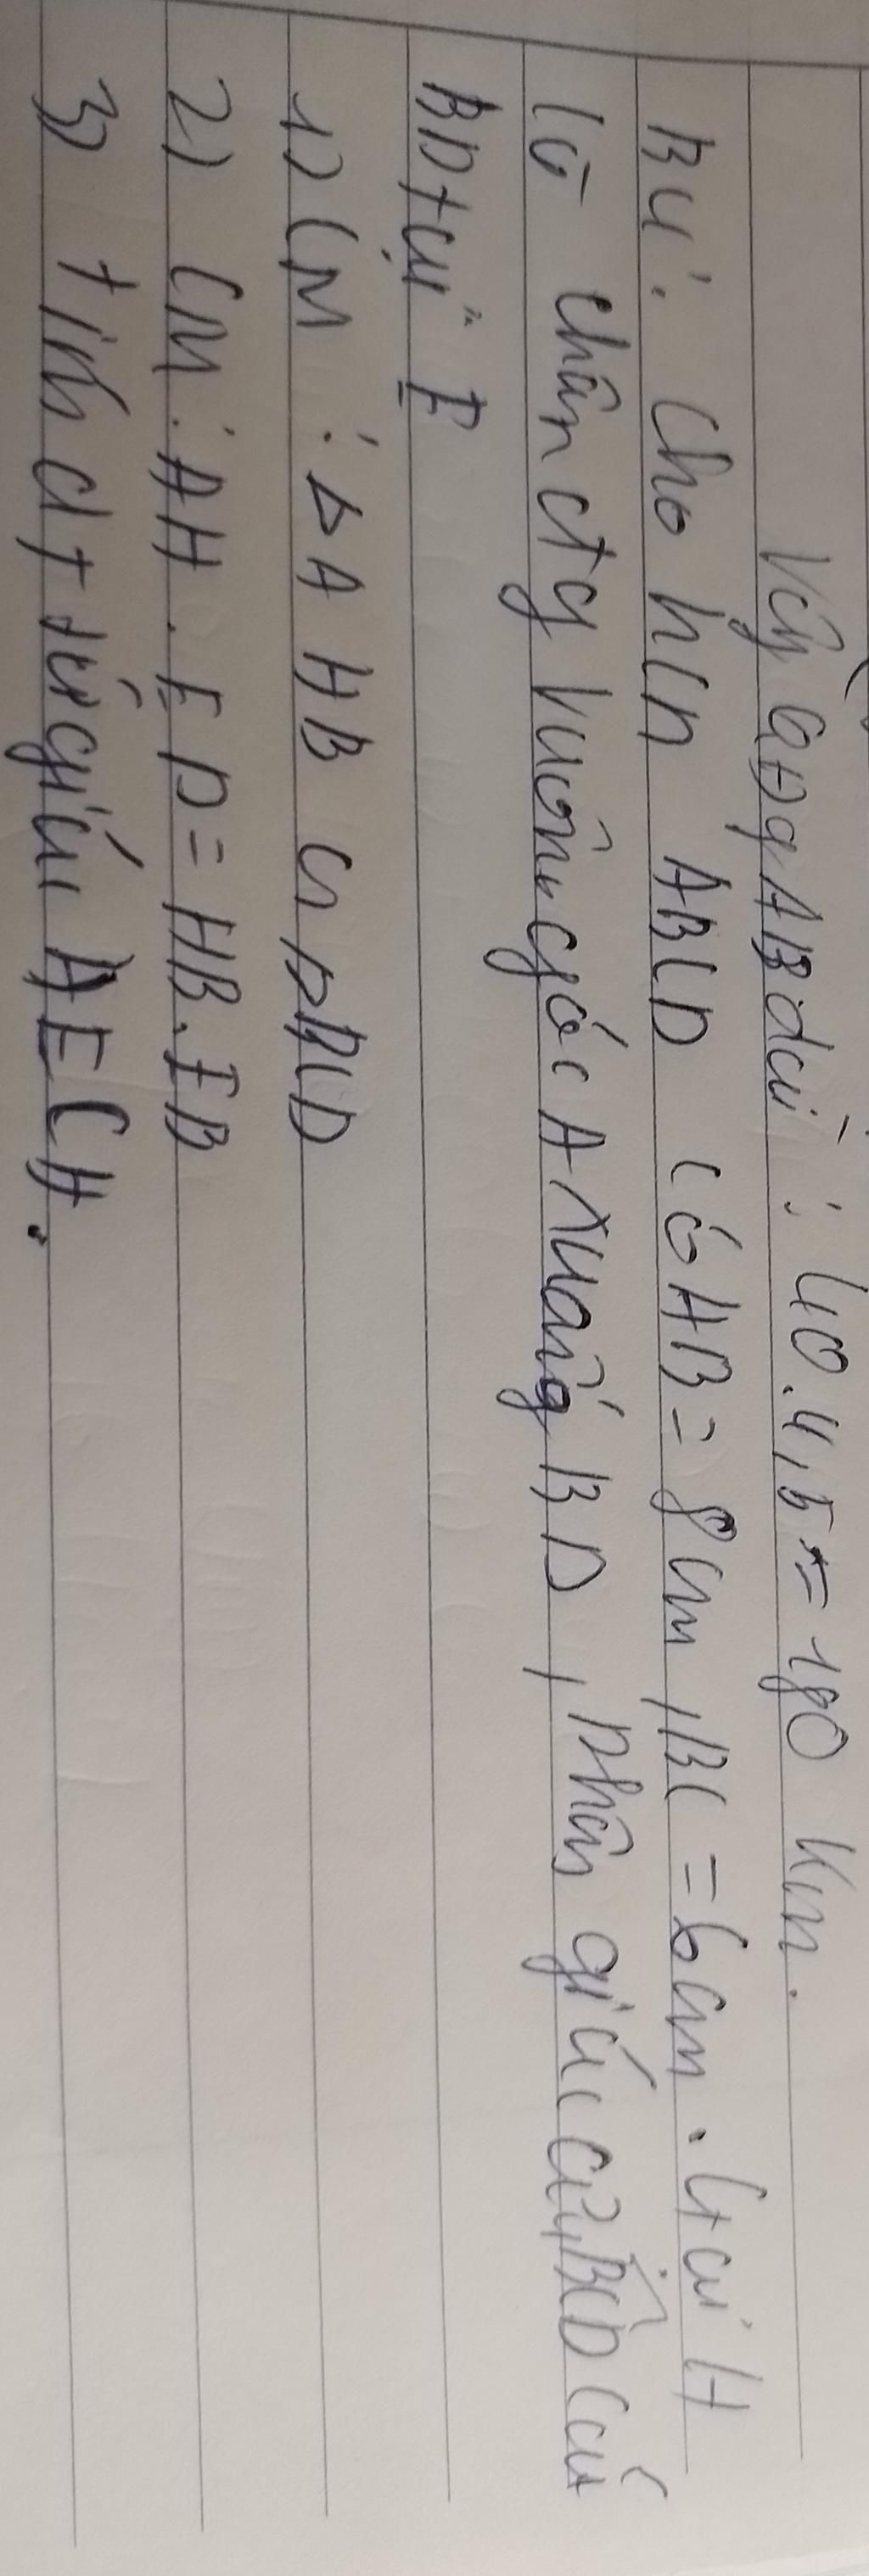 Vậy qđg AB dài : 40.4,5 = 180 km.
B4: Cho hcn ABCD có AB = 8cm, BC = 6cm. Gọi H
là chân đg vuông góc A xuống BD, phân giác của BCD cắt
BD tại E
1) CM : ΔAHB ∽ ΔBCD
2) CM: AH. ED = HB. EB
3) tính dt tứ giác AECH.